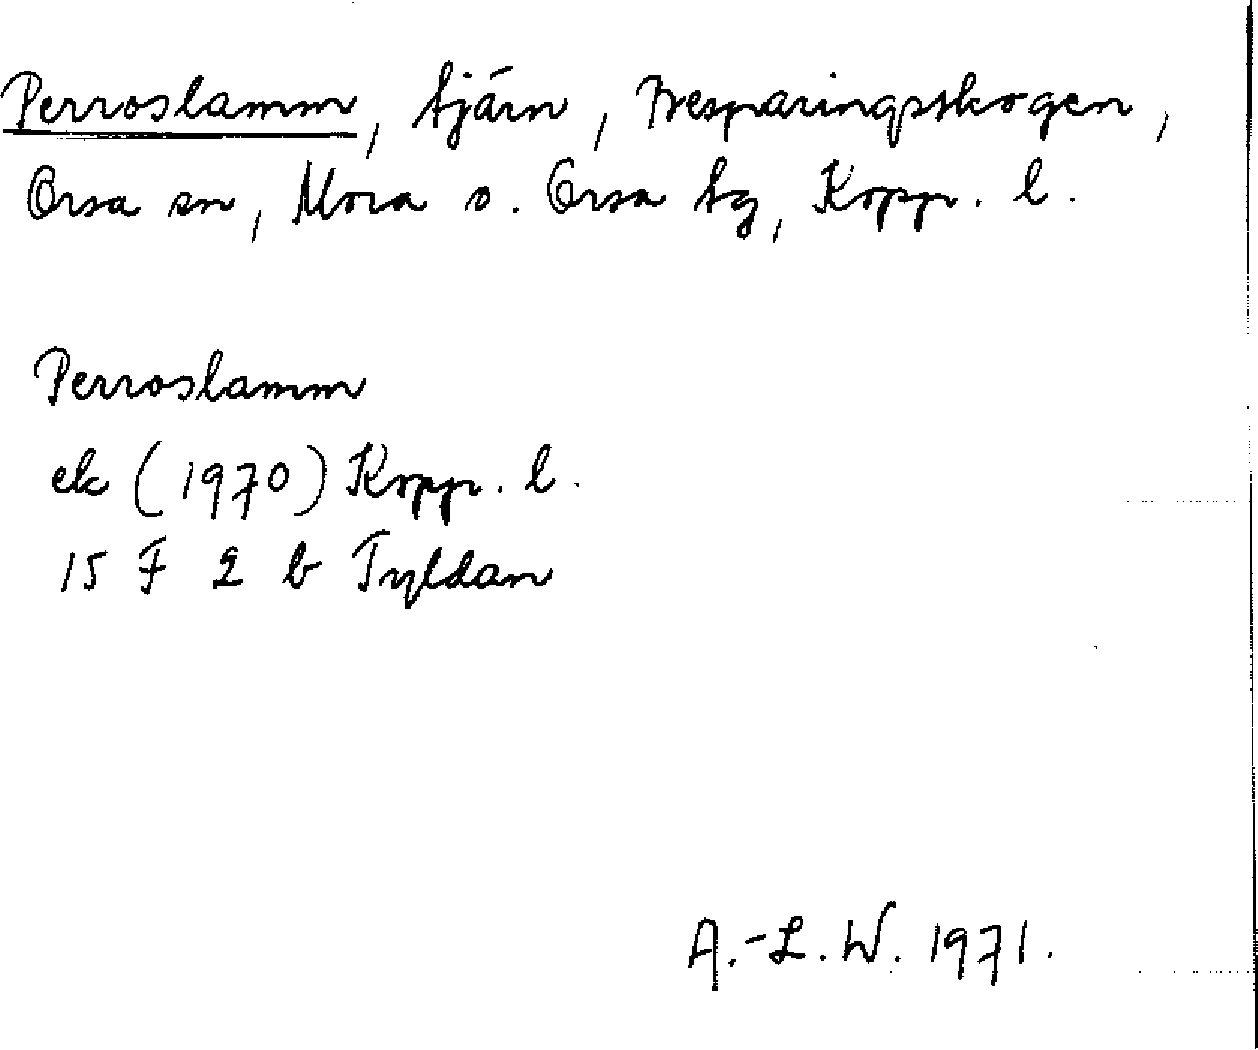 Perroslamm, tjärn, Besparingsskogen,
Orsa sn, Mora o. Orsa tg, Kopp. l.
Perroslamm
ek (1970) Kopp. l.
15 F 2 b Tyldan
A.-L. W. 1971.